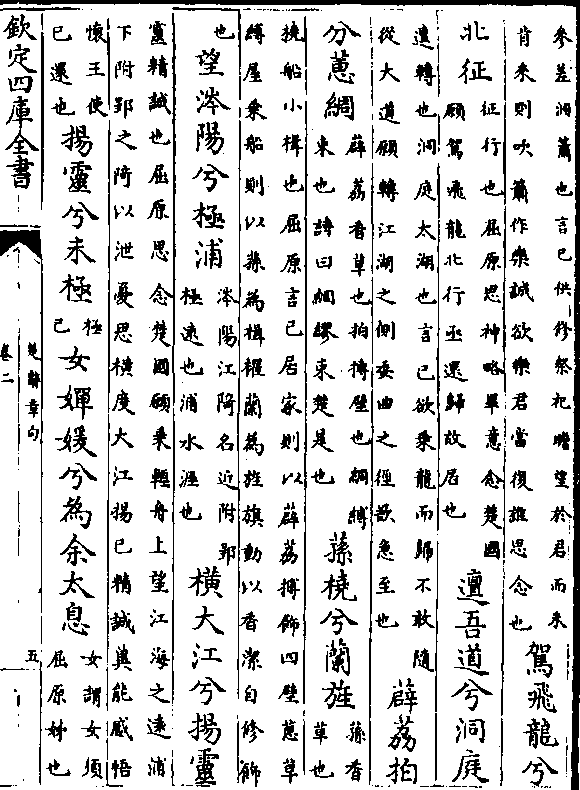 參差洞簫也言已供修祭祀瞻望於君而未
肯來則吹簫作樂誠欲樂君當復誰思念也
駕飛龍兮
北征
征行也屈原思神略畢意念楚國
願駕飛龍北行亟還歸故居也
邅吾道兮洞庭
邅轉也洞庭太湖也言已欲乘龍而歸不敢隨
從大道願轉江湖之側委曲之徑欲急至也
薜荔拍
兮蕙綢
薜荔香草也拍摶壁也綢縛
束也詩曰綢繆束楚是也
蓀橈兮蘭旌
蓀香
草也
橈船小楫也屈原言已居家則以薜荔摶飾四壁蕙草
縛屋乘船則以蓀為楫櫂蘭為旌旗動以香潔自修飾
也
望涔陽兮極浦
涔陽江陭名近附郢
極遠也浦水涯也
橫大江兮揚靈
靈精誠也屈原思念楚國願乘輕舟上望江海之遠浦
下附郢之陭以泄憂思橫度大江揚已精誠冀能感悟
懷王使
已還也
揚靈兮未極
極
已
女嬋媛兮為余太息
女謂女須
屈原姊也
欽定四庫全書
楚辭章句
卷二
五